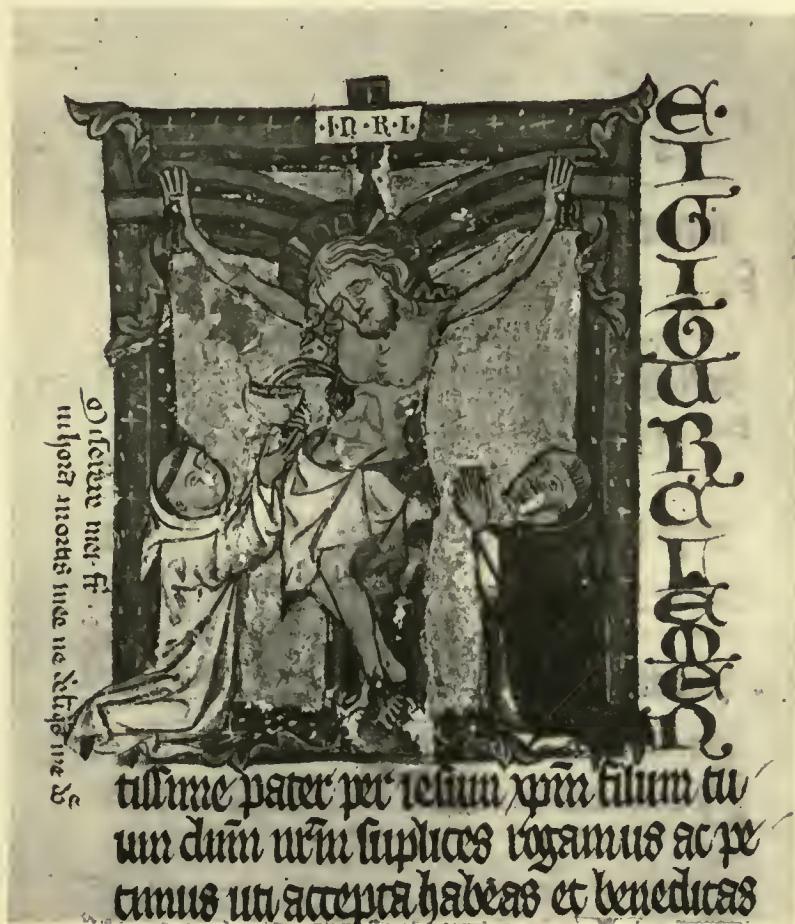 ·I·N·R·I·
EIGITURCLEMEN
Miserere mei
in hora mortis mee ne me
tissime pater per iesum xp̄m filium tu
um dn̄m nr̄m suplices rogamus ac pe
timus uti accepta habeas et benedicas